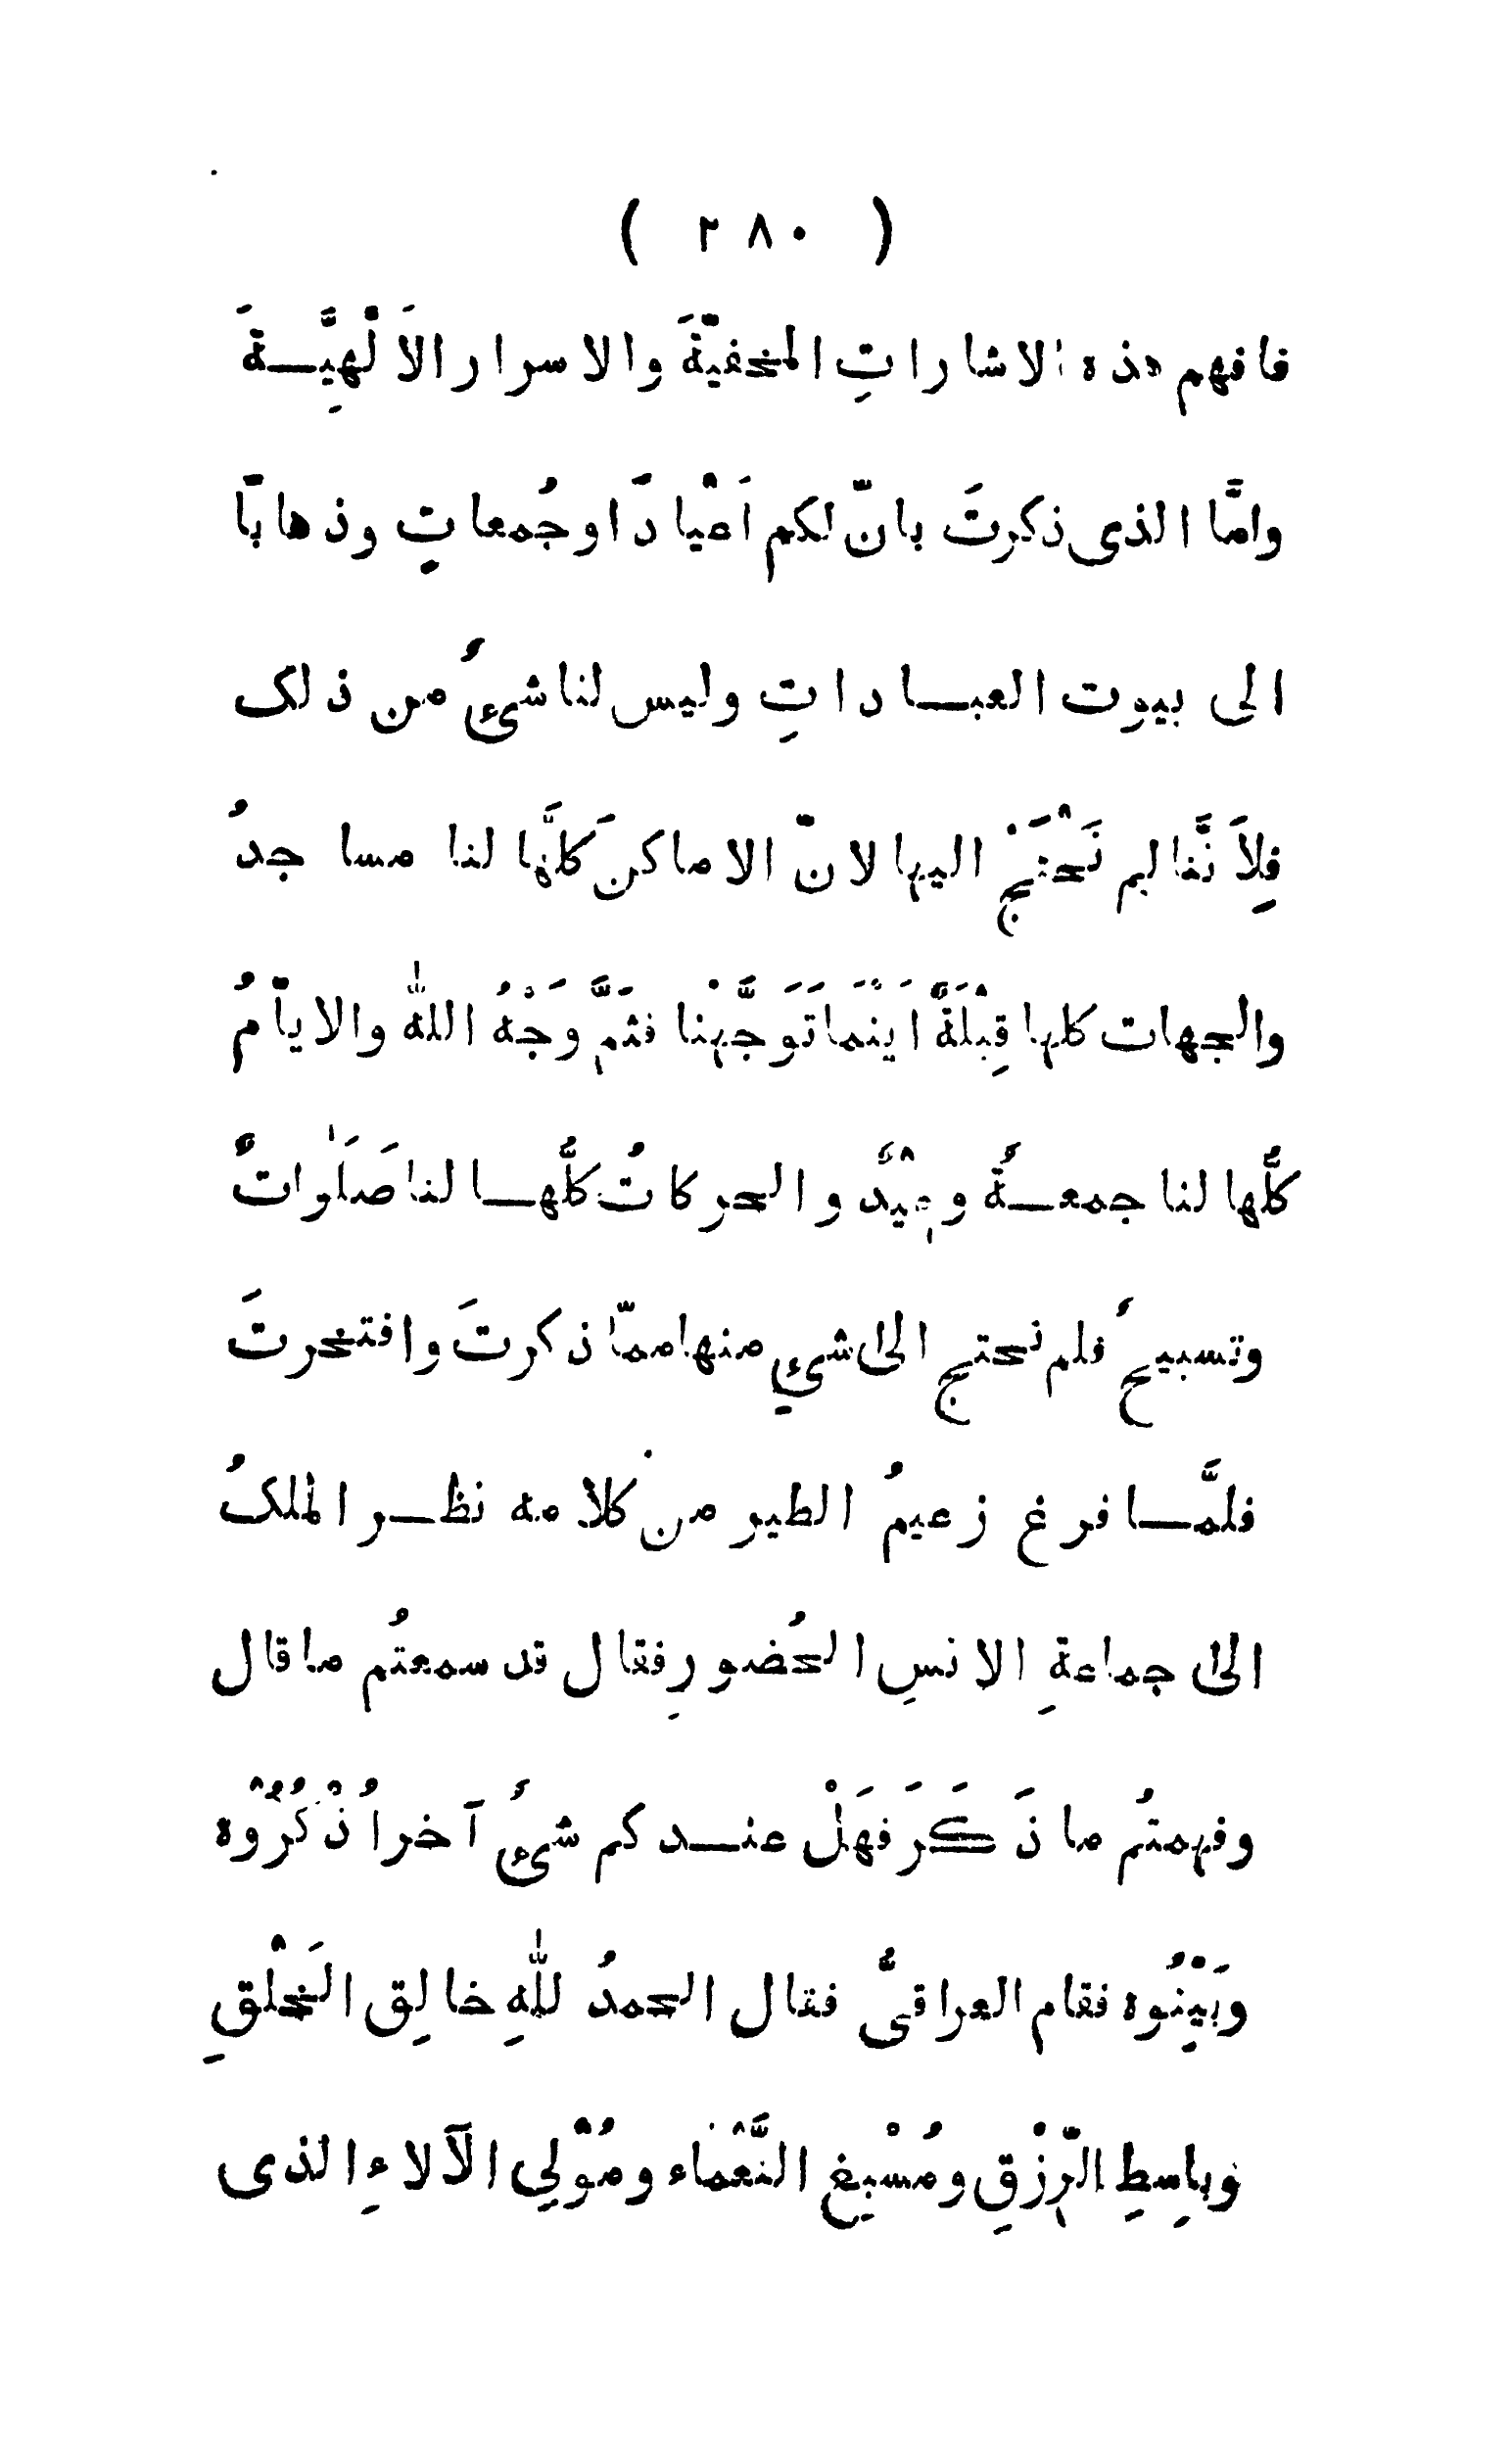 ( ٢٨٠ )
فافهم هذه الاشاراتِ المخفيّةَ والاسرار الاَلْهِيَّـةَ
وامَّا الذى ذكرتَ بانّ لكم اَعْيادًا وجُمعاتٍ وذهابًا
الى بيوت العبـاداتِ وليس لنا شئٌ من ذلك
فِلاَنَّنا لم نَحْتَجْ اليها لانّ الاماكنَ كلَّها لنا مساجدُ
والجهات كلها قِبْلَةً اَيْنَمَا تَوَجَّهْنا فثَمَّ وَجْهُ اللّٰه والايّامُ
كلُّها لنا جمعـةٌ وعِيْدٌ والحركاتُ كلُّهـا لنا صَلَٰواتٌ
وتسبيحٌ فلم نحتج الىٰ شيءٍ منها ممّا ذكرتَ وافتخرتَ
فلمَّـا فرغ زعيمُ الطيور من كلامه نظـر الملكُ
الىٰ جماعةِ الانسِ الحُضورِ فقال قد سمعتُم ما قال
وفهمتُم ما ذَكَرَ فهَلْ عنـدكم شئٌ آخر اُذْكُرُوْه
وَبَيِّنُوه فقام العراقىُّ فقال الحمدُ للّٰهِ خالِقِ الخَلْقِ
وباسِطِ الرِّزْقِ ومُسْبِغِ النَّعْمَاء ومُوْلِي الآلاءِ الذى